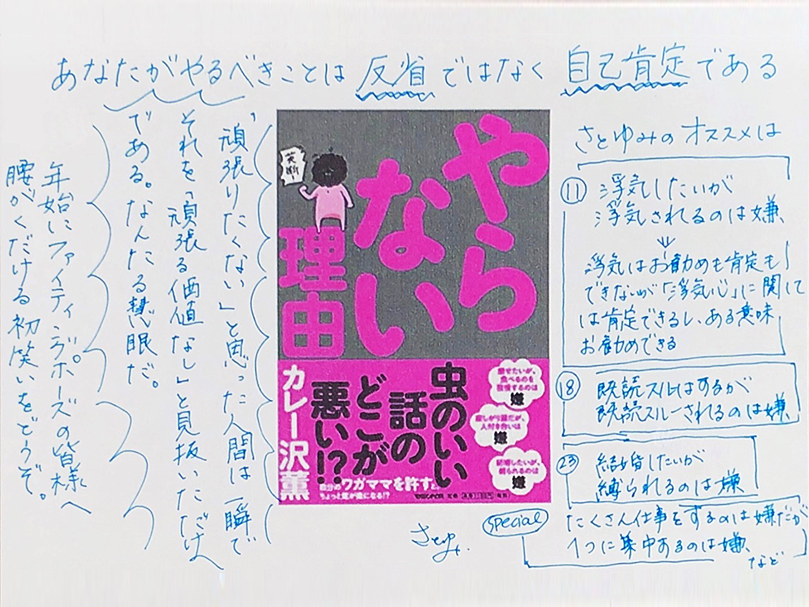 あなたがやるべきことは 反省ではなく 自己肯定である
「頑張りたくない」と思った人間は一瞬で
それを「頑張る価値なし」と見抜いただけ
である。なんたる慧眼だ。
年始にファイティングポーズの皆様へ
腰がくだける初笑いをどうぞ。
英断!
やら
ない
理由
カレー沢薫
虫のいい
話の
どこが
悪い!?
痩せたいが、
食べるのを
我慢するのは
嫌
寂しがり屋だが、
人付き合いは
嫌
結婚したいが、
縛られるのは
嫌
自分のワガママを許すと
ちょっと気が楽になる!?
マガジンハウス
さとゆみのオススメは
⑪ 浮気したいが
浮気されるのは嫌、
⇓
浮気はお勧めも肯定も
できないが「浮気心」に関して
は肯定できるし、ある意味
お勧めできる
⑱ 既読スルーはするが
既読スルーされるのは嫌、
㉓ 結婚したいが
縛られるのは嫌
special
たくさん仕事をするのは嫌だが
1つに集中するのは嫌、
など
さとゆみ